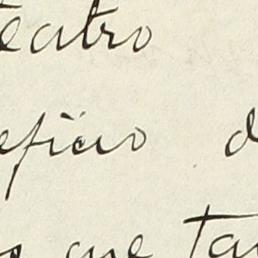 teatro
eficio d
que ta